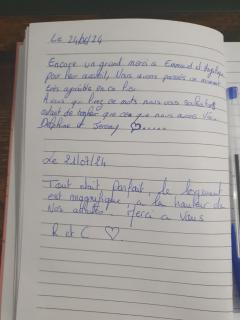 Le 24/06/24
Encore un grand merci à Emmanuel et Angélique
pour leur accueil, Nous avons passés un moment
très agréable en ce lieu.
A vous qui lirez ces mots nous vous souhaitons
autant de bonheur que ceux que nous avons vécu
Delphine et Jeremy ♡......
Le 21/07/24
Tout était parfait, le logement
est magnifique, à la hauteur de
nos attentes. Merci à vous
R et C ♡